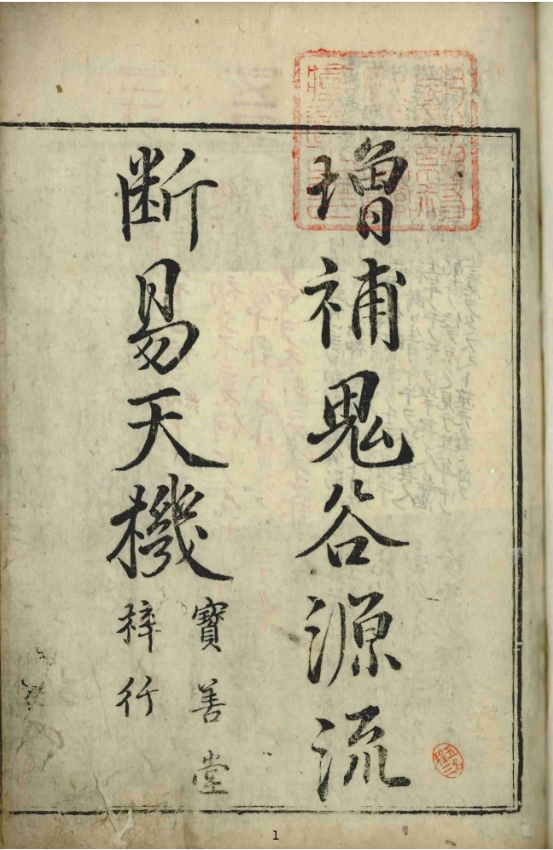 増補鬼谷源流
断易天機
寳善堂
梓行
1